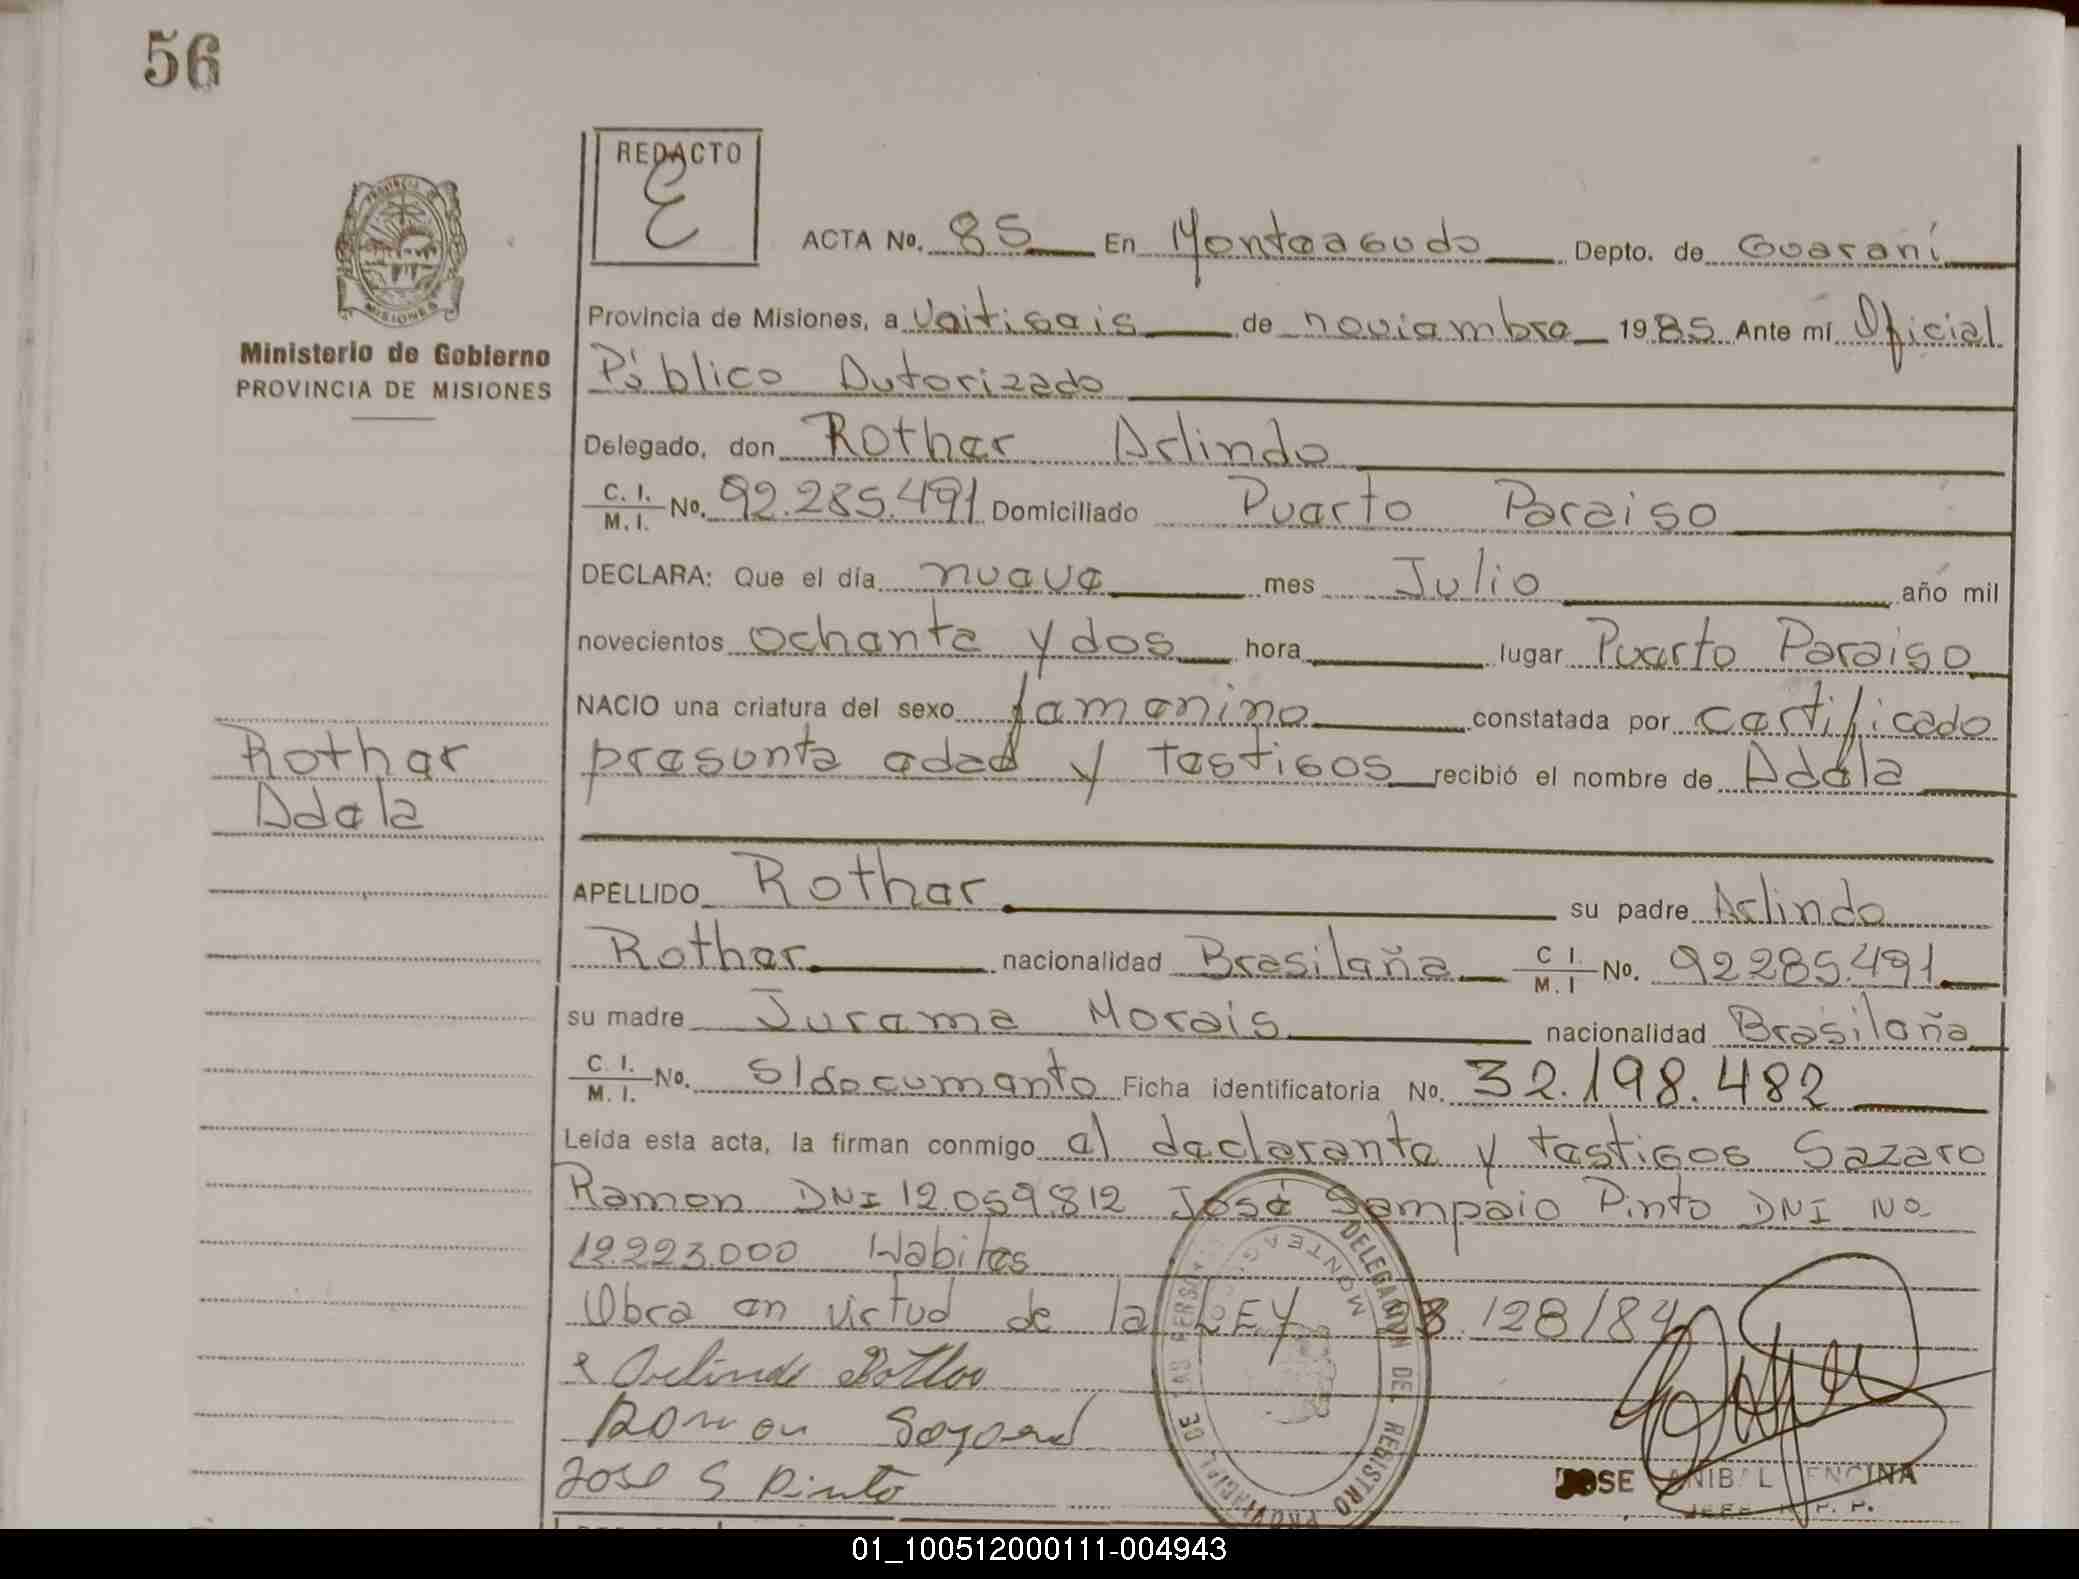 56
REDACTO
E
ACTA No. 85 En Monteagudo Depto. de Guaraní
Provincia de Misiones, a Veitiseis de noviembre 1985 Ante mí Oficial
Ministerio de Gobierno
PROVINCIA DE MISIONES
Público Autorizado
Delegado, don Rother Arlindo
C. I. / M. I. No. 92.285.491 Domiciliado Puerto Paraiso
DECLARA: Que el día nueve mes Julio año mil
novecientos ochenta y dos hora lugar Puerto Paraiso
NACIO una criatura del sexo femenino constatada por certificado
presunta edad y testigos recibió el nombre de Adela
Rother
Adela
APELLIDO Rother su padre Arlindo
Rother nacionalidad Brasileña C I. / M. I No. 92285.491
su madre Jurema Morais nacionalidad Brasileña
C. I. / M. I. No. s/documento Ficha identificatoria No. 32.198.482
Leída esta acta, la firman conmigo el declarante y testigos Sazaro
Ramon DNI 12.059.812 José Sampaio Pinto DNI No
12.223.000 Habiles
Obra en virtud de la LEY 23.128/84
Arlindo Rother
Ramon
Jose S Pinto
DELEGACION DEL REGISTRO PROVINCIAL DE LAS PERSONAS
MONTEAGUDO
JOSE ANIBAL ENCINA
JEFE R. P. P.
01_100512000111-004943